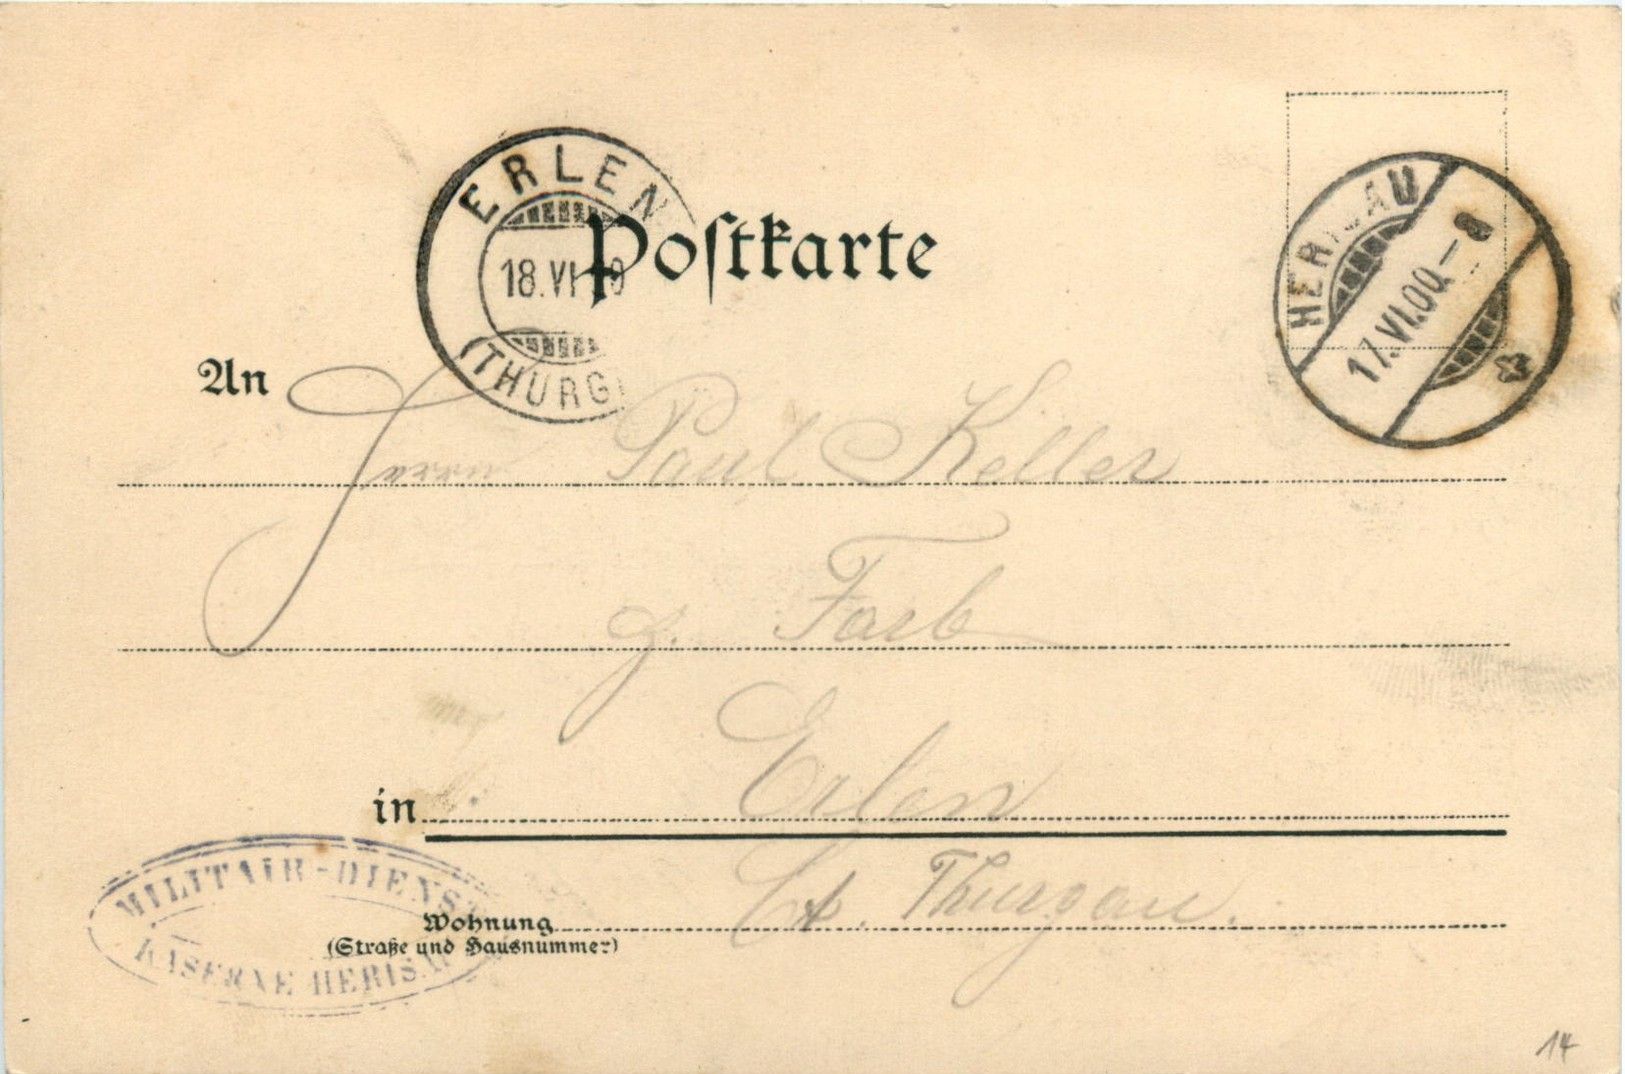 ERLEN
18.VI
(THURG
Postkarte
HERISAU
17.VI.00.-8
An
Herrn Paul Keller
z. Farb
in Erlen
Ct. Thurgau.
Wohnung
(Straße und Hausnummer)
MILITAIR-DIENST
KASERNE HERISAU
14